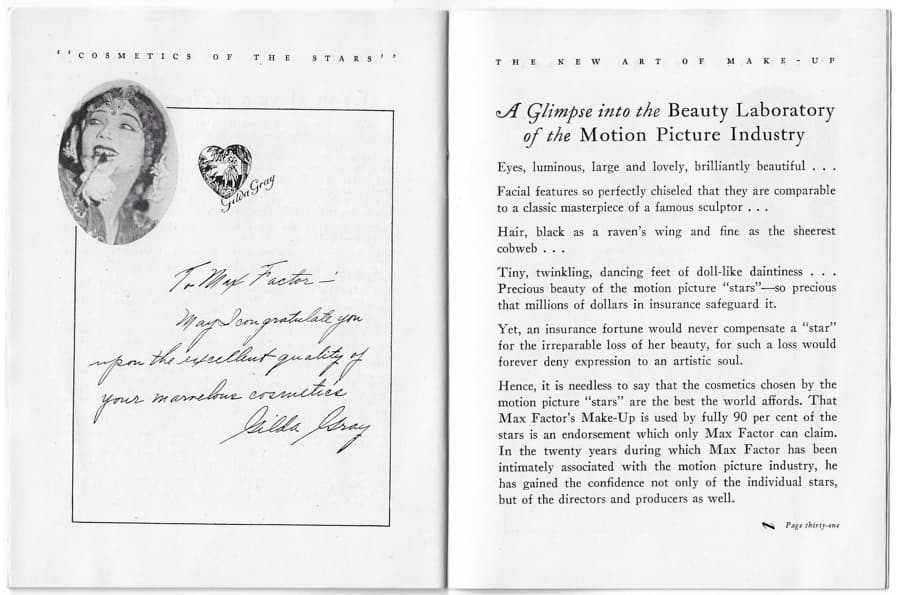 "COSMETICS OF THE STARS"
Gilda Gray
To Max Factor—
May I congratulate you
upon the excellent quality of
your marvelous cosmetics
Gilda Gray
THE NEW ART OF MAKE-UP
A Glimpse into the Beauty Laboratory
of the Motion Picture Industry
Eyes, luminous, large and lovely, brilliantly beautiful . . .
Facial features so perfectly chiseled that they are comparable
to a classic masterpiece of a famous sculptor . . .
Hair, black as a raven's wing and fine as the sheerest
cobweb . . .
Tiny, twinkling, dancing feet of doll-like daintiness . . .
Precious beauty of the motion picture "stars"—so precious
that millions of dollars in insurance safeguard it.
Yet, an insurance fortune would never compensate a "star"
for the irreparable loss of her beauty, for such a loss would
forever deny expression to an artistic soul.
Hence, it is needless to say that the cosmetics chosen by the
motion picture "stars" are the best the world affords. That
Max Factor's Make-Up is used by fully 90 per cent of the
stars is an endorsement which only Max Factor can claim.
In the twenty years during which Max Factor has been
intimately associated with the motion picture industry, he
has gained the confidence not only of the individual stars,
but of the directors and producers as well.
Page thirty-one